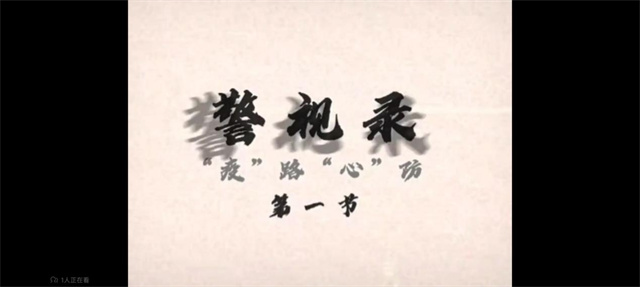 警视录
“疫”路“心”防
第一节
1人正在看